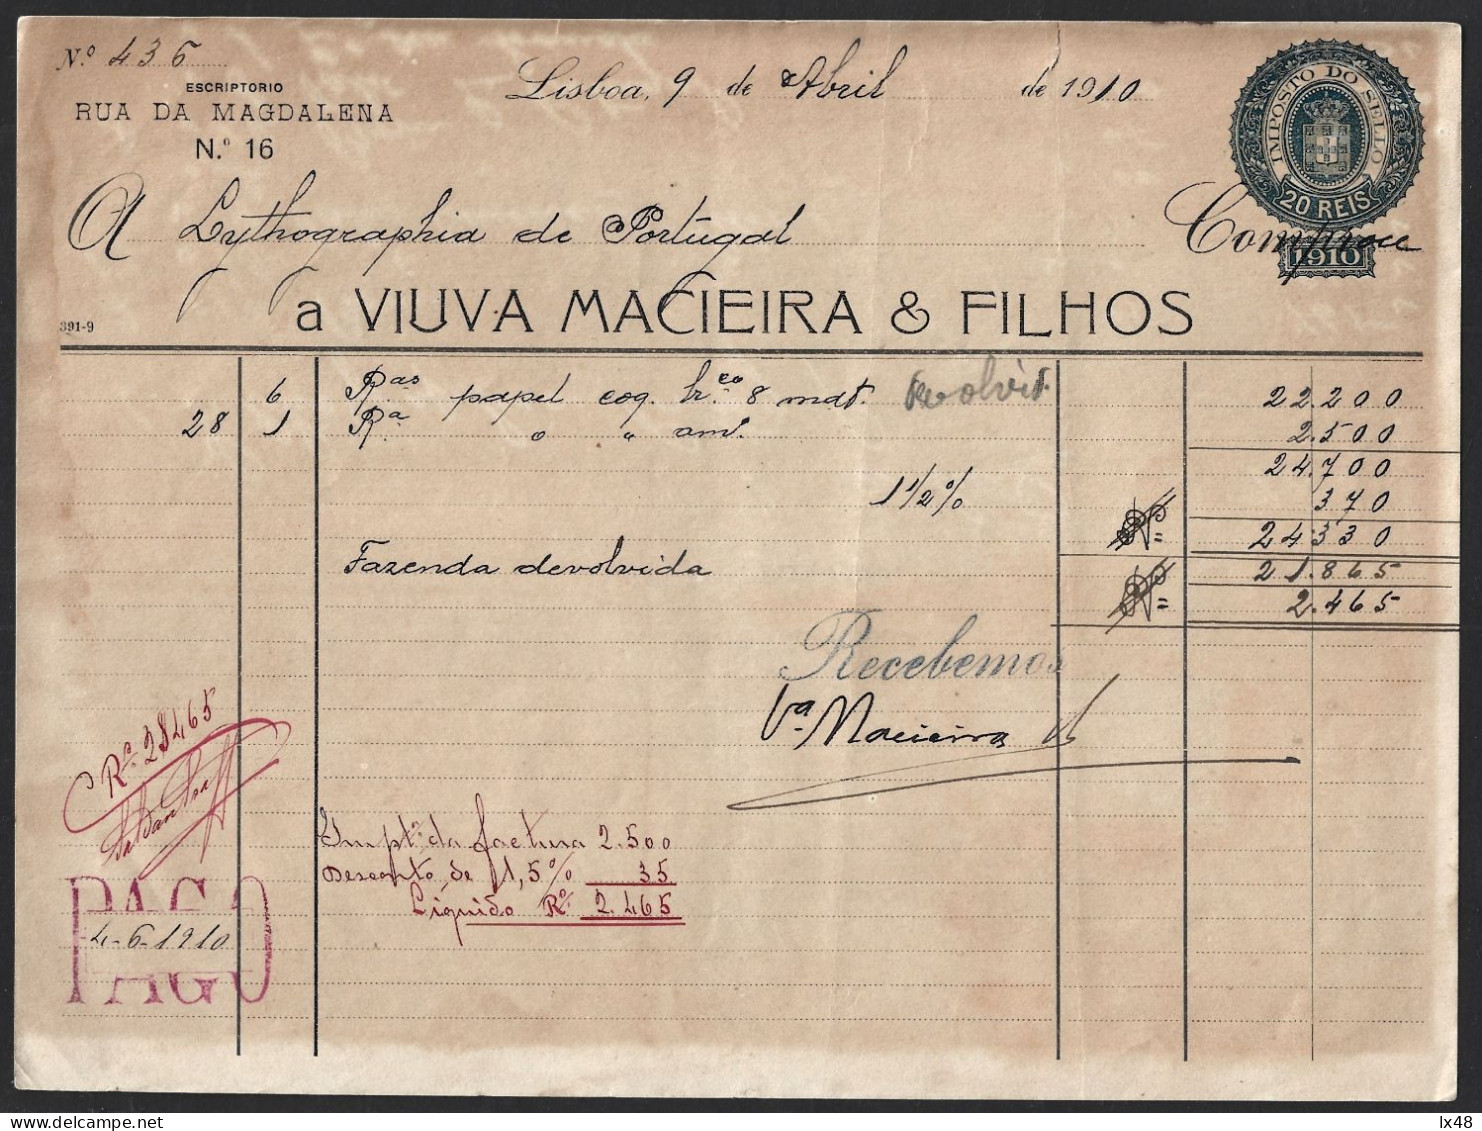 N.º 436
ESCRIPTORIO
RUA DA MAGDALENA
N.º 16
Lisboa, 9 de Abril de 1910
IMPOSTO DO SELLO
20 REIS
1910
A Lythographia de Portugal Comprou
a VIUVA MACIEIRA & FILHOS
391-9
6 R.as papel coq. br.co 8 mdt. devolvid. 22.200
28 1 R.a " " am. 2.500
24.700
1 1/2 % 370
24330
Fazenda devolvida 21.865
2.465
Recebemos
V.a Macieira
R.s 2$465
Impt. da factura 2.500
Desconto de 1,5% 35
Líquido R.s 2.465
PAGO
4-6-1910
lx48